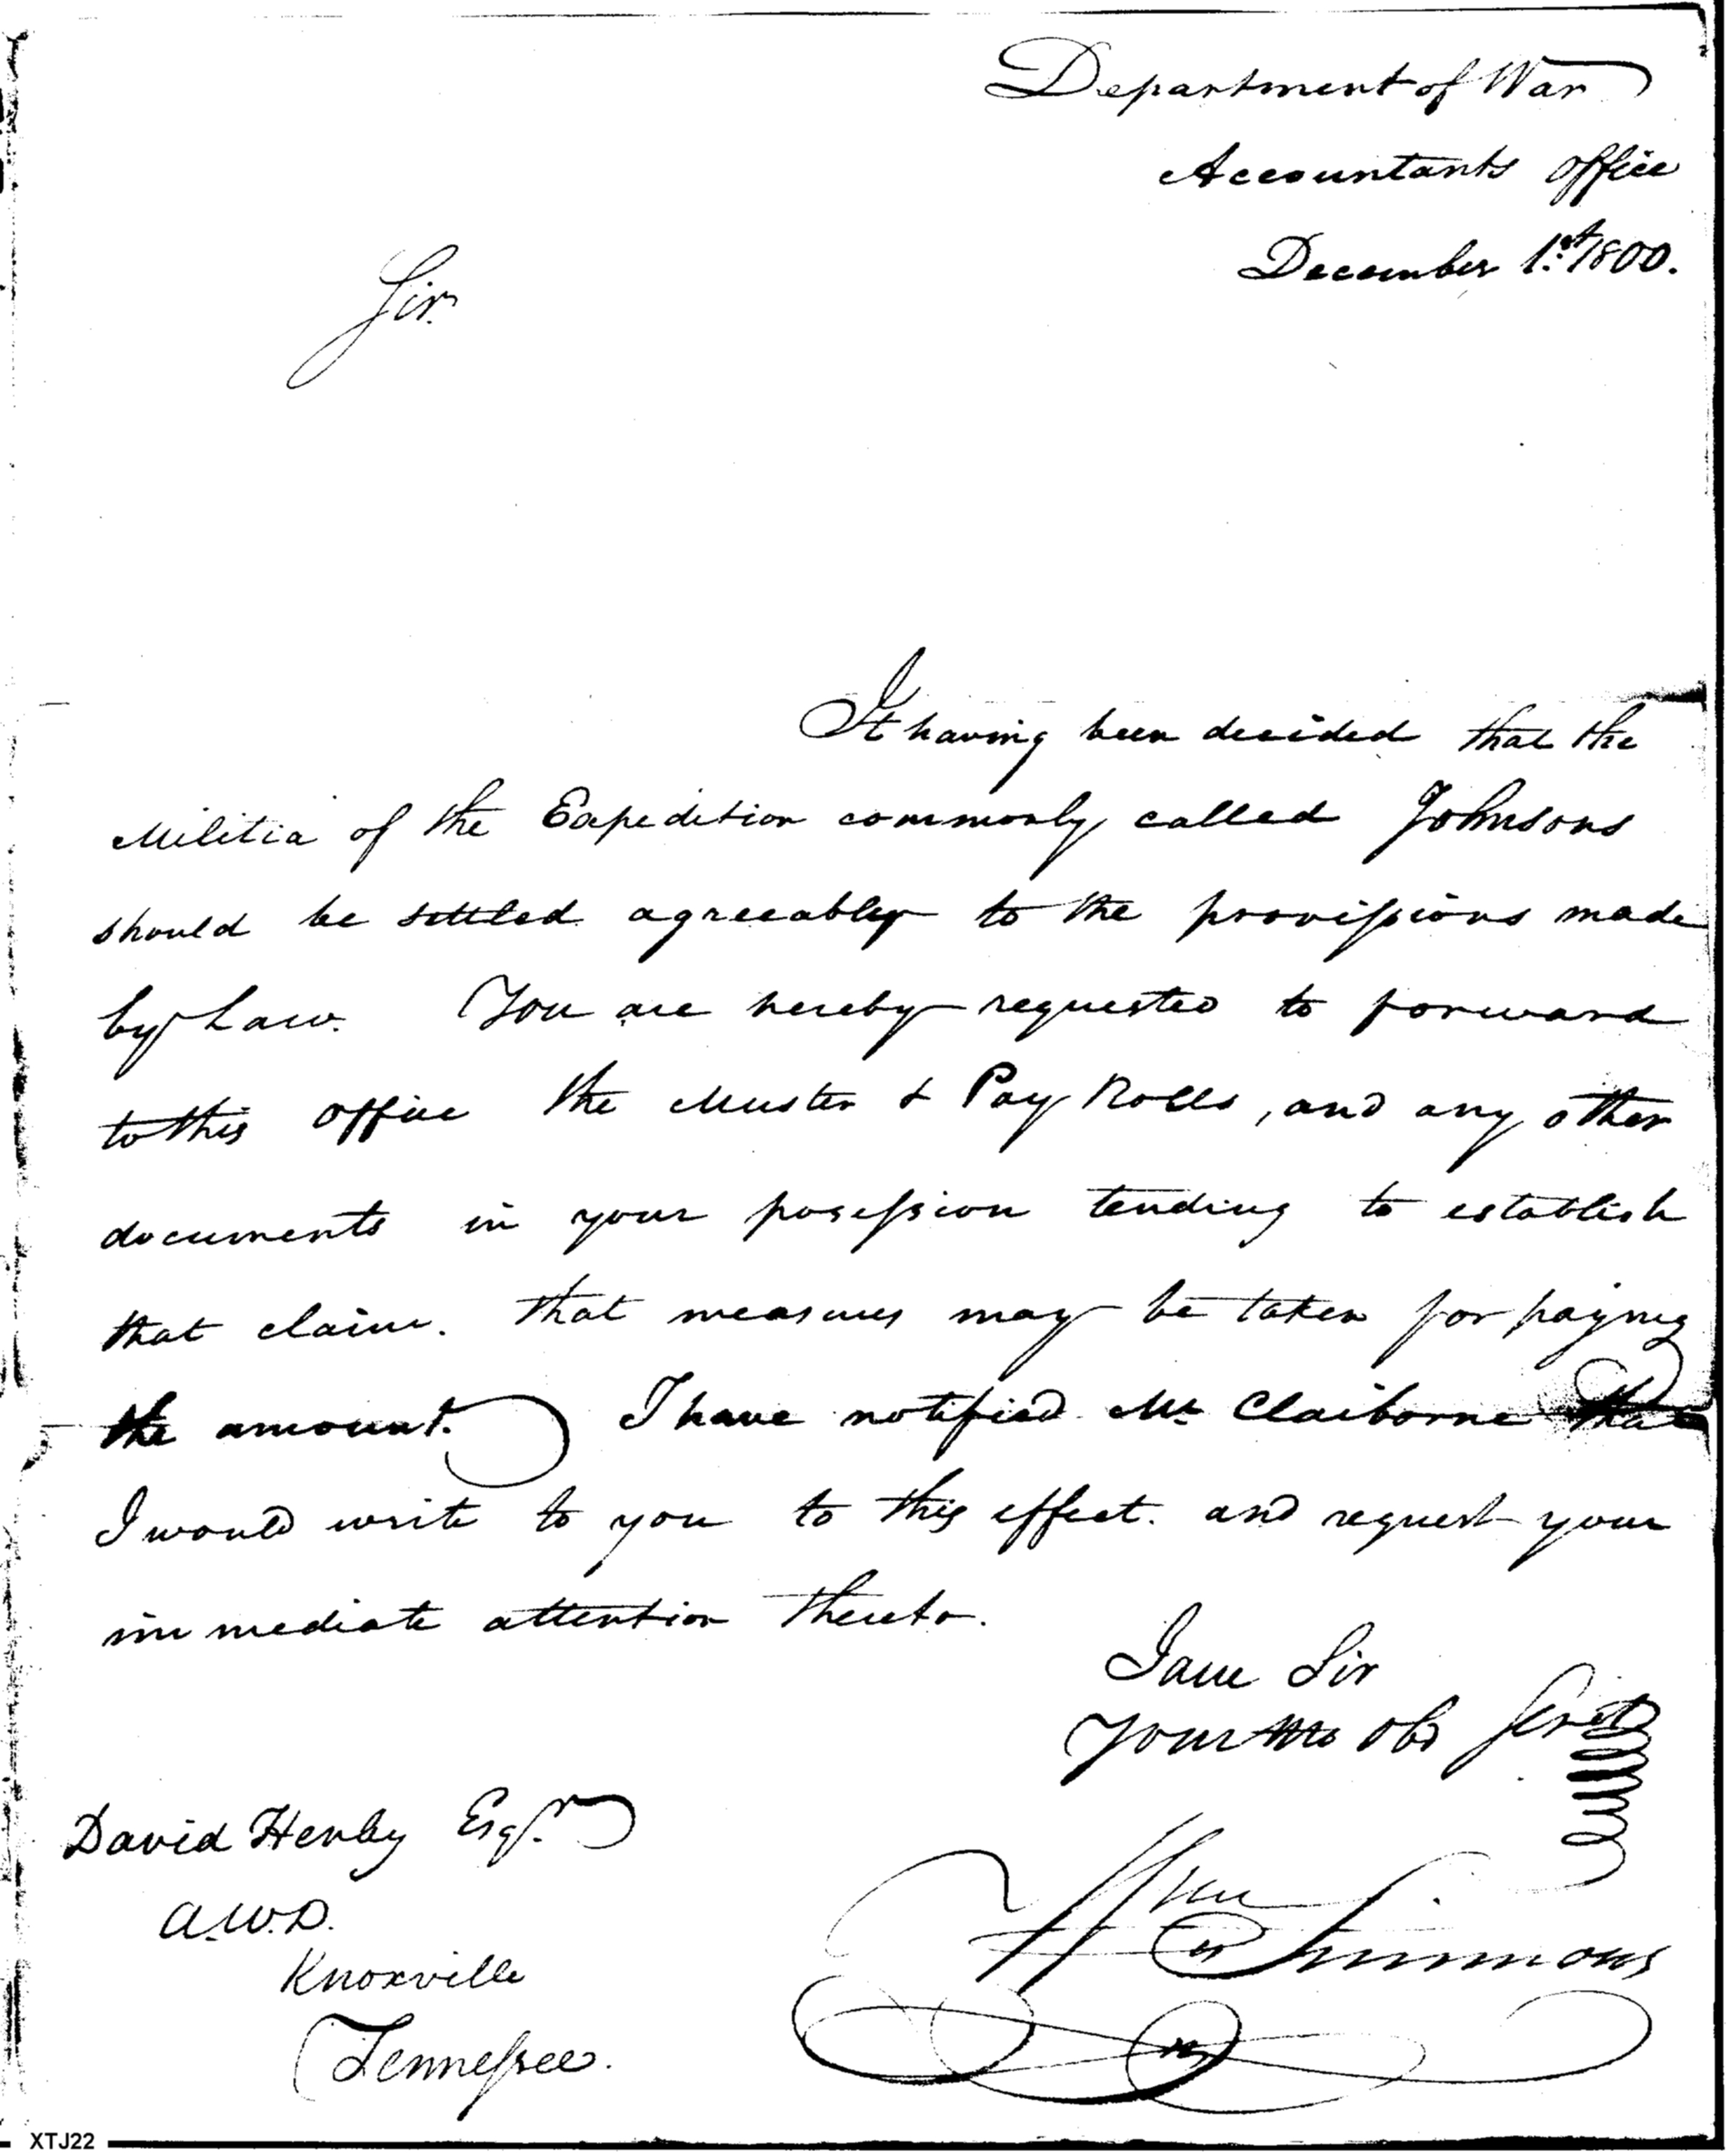 Department of War
Accountants office
December 1st 1800.
Sir.
It having been decided that the
Militia of the Expedition commonly called Johnsons
should be settled agreeably to the provissions made
by Law. You are hereby requested to forward
to this office the Muster & Pay Rolls, and any other
documents in your posession tending to establish
that claim. that measures may be taken for paying
the amount. I have notified Mr Claiborne that
I would write to you to this effect. and request your
immediate attention thereto.
I am Sir
Your Mo Ob Servt
David Henley Esqr.
A.W.D.
Knoxville
Tennessee.
Wm Simmons
XTJ22